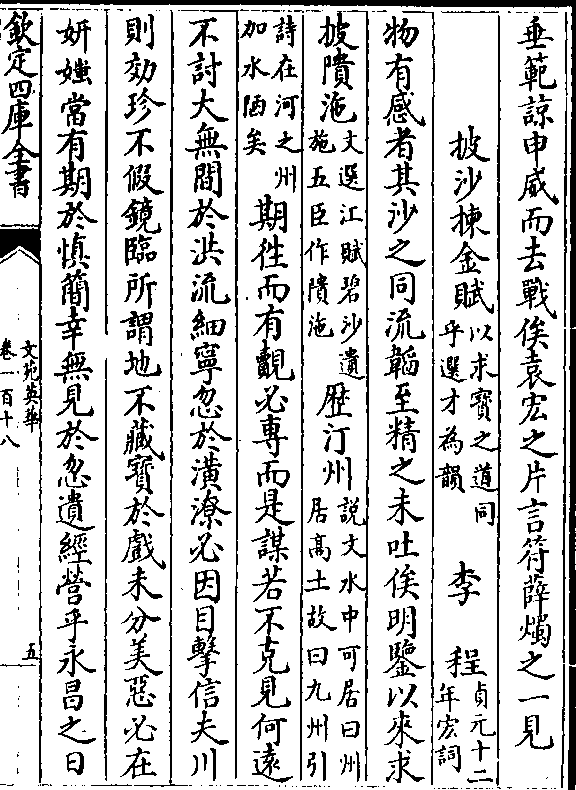 垂範諒申威而去戰俟袁宏之片言符薛燭之一見
披沙揀金賦以求寶之道同乎選才為韻 李程貞元十二年宏詞
物有感者其沙之同流韜至精之未吐俟明鑒以來求
披隤沲文選江賦碧沙遺㐌五臣作隤沲歴汀州説文水中可居曰州居髙土故曰九州引
詩在河之州加水陋矣期徃而有覿必專而是謀若不克見何遠
不討大無間於洪流細寧忽於潢潦必因目擊信夫川
則効珍不假鏡臨所謂地不藏寳於戲未分美惡必在
妍媸當有期於慎簡幸無見於忽遺經營乎永昌之日
欽定四庫全書
文苑英華
卷一百十八
五